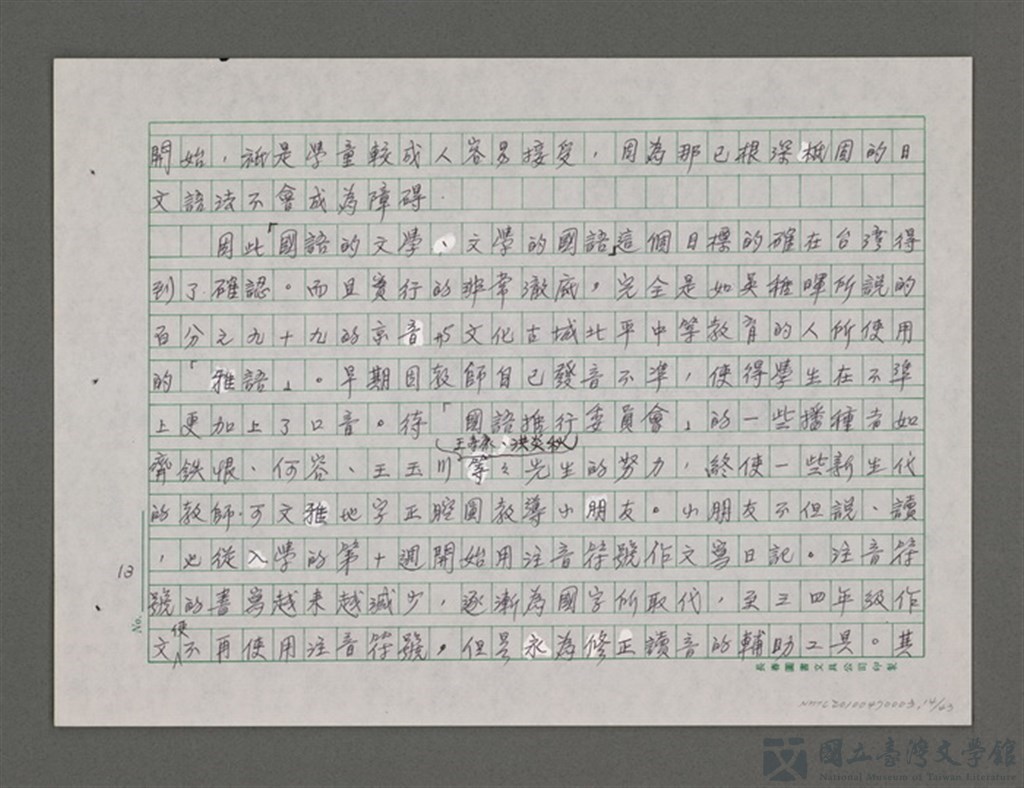 開始，祇是學童較成人容易接受，因為那已根深柢固的日
文語法不會成為障碍．
因此「國語的文學、文學的國語」這個目標的確在台湾得
到了確認。而且實行的非常澈底，完全是如吳稚暉所説的
百分之九十九的京音 文化古城北平中等教育的人所使用
的「雅語」。早期因教師自己發音不準，使得學生在不準
上更加上了口音。待「國語推行委員會」的一些播種者如
王壽康、洪炎秋
齊鉄恨、何容、王玉川等々先生的努力，終使一些新生代
的教師．可文雅地字正腔圓教導小朋友。小朋友不但説、讀
，也從入学的第十週開始用注音符號作文寫日記。注音符
號的書寫越来越減少，逐漸為國字所取代，至三四年級作
文使不再使用注音符號，但是永為修正讀音的輔助工具。其
13
No.
長春圖書文具公司印製
NMTL20100470003,14/23
國立臺灣文學館
National Museum of Taiwan Literature